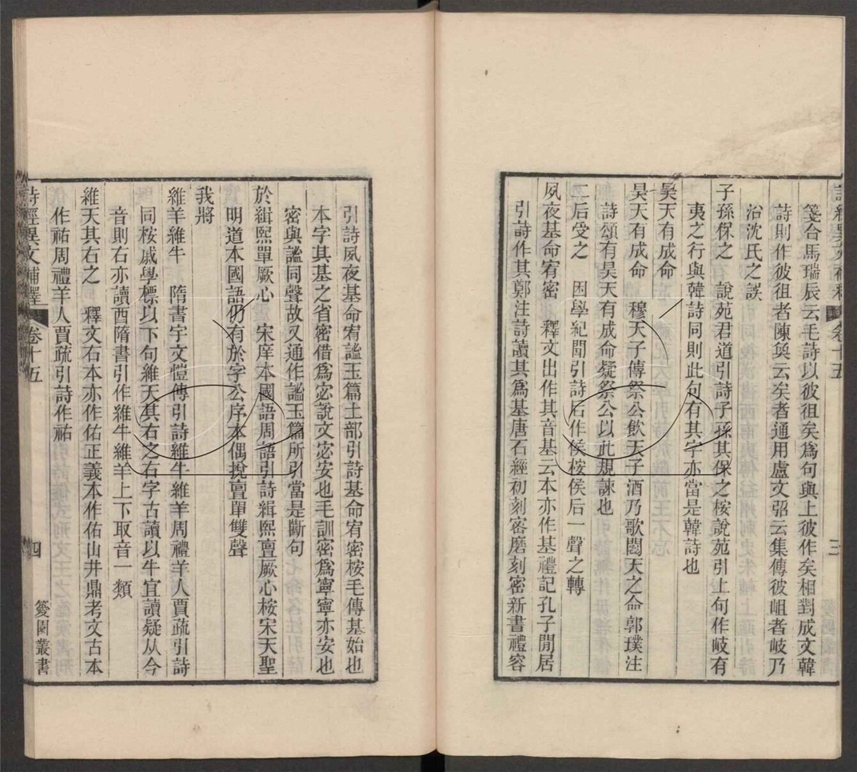 箋合馬瑞辰云毛詩以彼徂矣爲句與上彼作矣相對成文韓
詩則作彼徂者陳奐云矣者通用盧文弨云集傳彼岨者岐乃
沿沈氏之誤
子孫保之 說苑君道引詩子孫其保之桉說苑引上句作岐有
夷之行與韓詩同則此句有其字亦當是韓詩也
昊天有成命
昊天有成命 穆天子傳祭公飮天子酒乃歌䦥天之命郭璞注
詩頌有昊天有成命疑祭公以此規諫也
二后受之 困學紀聞引詩后作侯桉侯后一聲之轉
夙夜基命宥密 釋文出作其音基云本亦作基禮記孔子閒居
引詩作其鄭注詩讀其爲基唐石經初刻密磨刻密新書禮容
詩經異文補釋 卷十五 三
引詩夙夜基命宥謐玉篇土部引詩基命宥密桉毛傳基始也
本字其基之省密借爲宓說文宓安也毛訓密爲寧寧亦安也
密與謐同聲故又通作謐玉篇所引當是斷句
於緝熙單厥心 宋庠本國語周語引詩緝熙亶厥心桉宋天聖
明道本國語仍有於字公序本偶捝亶單雙聲
我將
維羊維牛 隋書宇文愷傳引詩維牛維羊周禮羊人賈疏引詩
同桉戚學標以下句維天其右之右字古讀以牛宜讀疑從今
音則右亦讀西隋書引作維牛維羊上下取音一類
維天其右之 釋文右本亦作佑正義本作佑山井鼎考文古本
作祐周禮羊人賈疏引詩作祐
詩經異文補釋 卷十五 四 篴園叢書